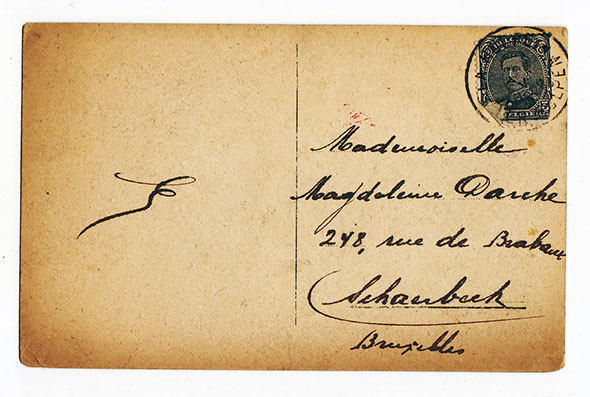 BELGIQUE
BELGIE
Mademoiselle
Magdeleine Darche
248, rue de Brabant
Schaerbeek
Bruxelles